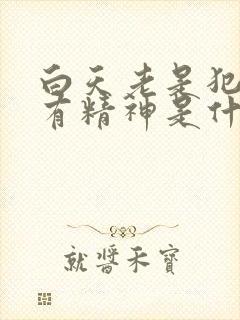 白天老是犯
有精神是什
就医采宝